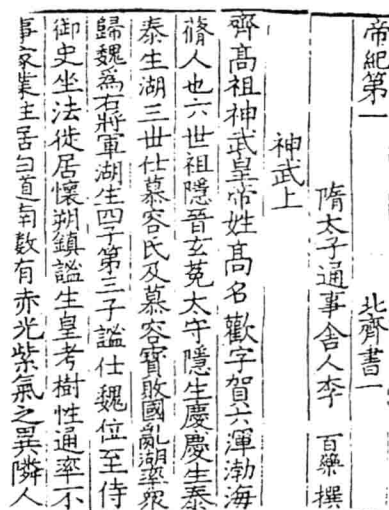 帝紀第一 北齊書一
隋太子通事舍人李 百藥 撰
神武上
齊髙祖神武皇帝姓髙名歡字賀六渾渤海
蓨人也六世祖隱晉玄菟太守隱生慶慶生泰
泰生湖三世仕慕容氏及慕容寳敗國亂湖率衆
歸魏爲右將軍湖生四子第三子謐仕魏位至侍
御史坐法徙居懷朔鎮謐生皇考樹性通率不
事家業住居白道南數有赤光紫氣之異隣人